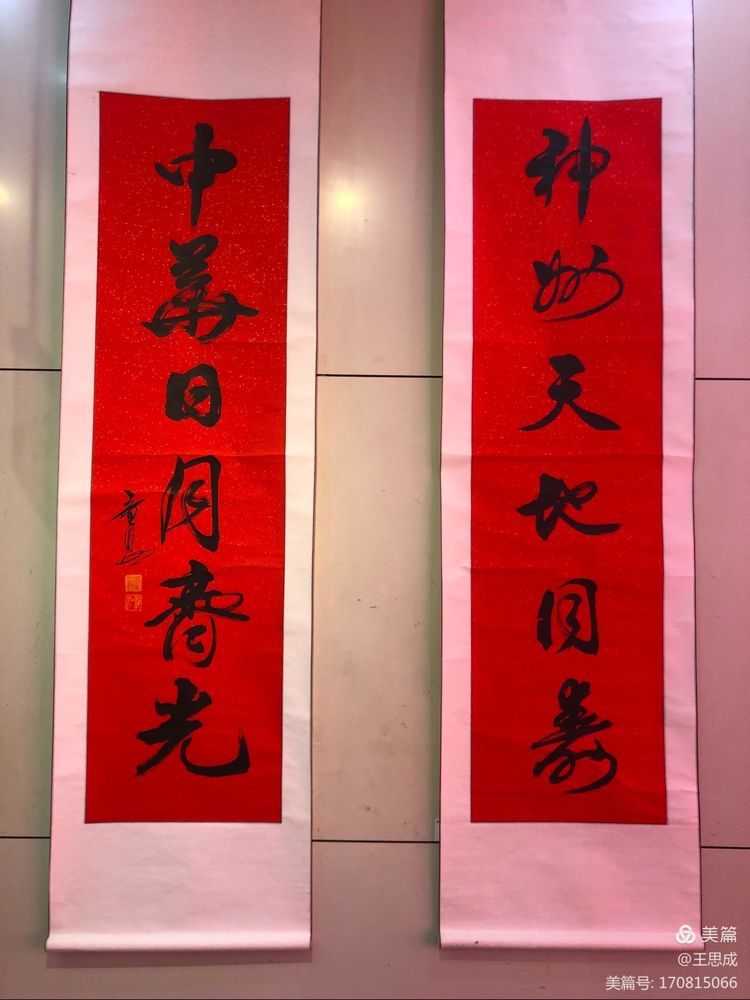 神州天地同寿
中华日月齊光
美篇
@王思成
美篇号: 170815066